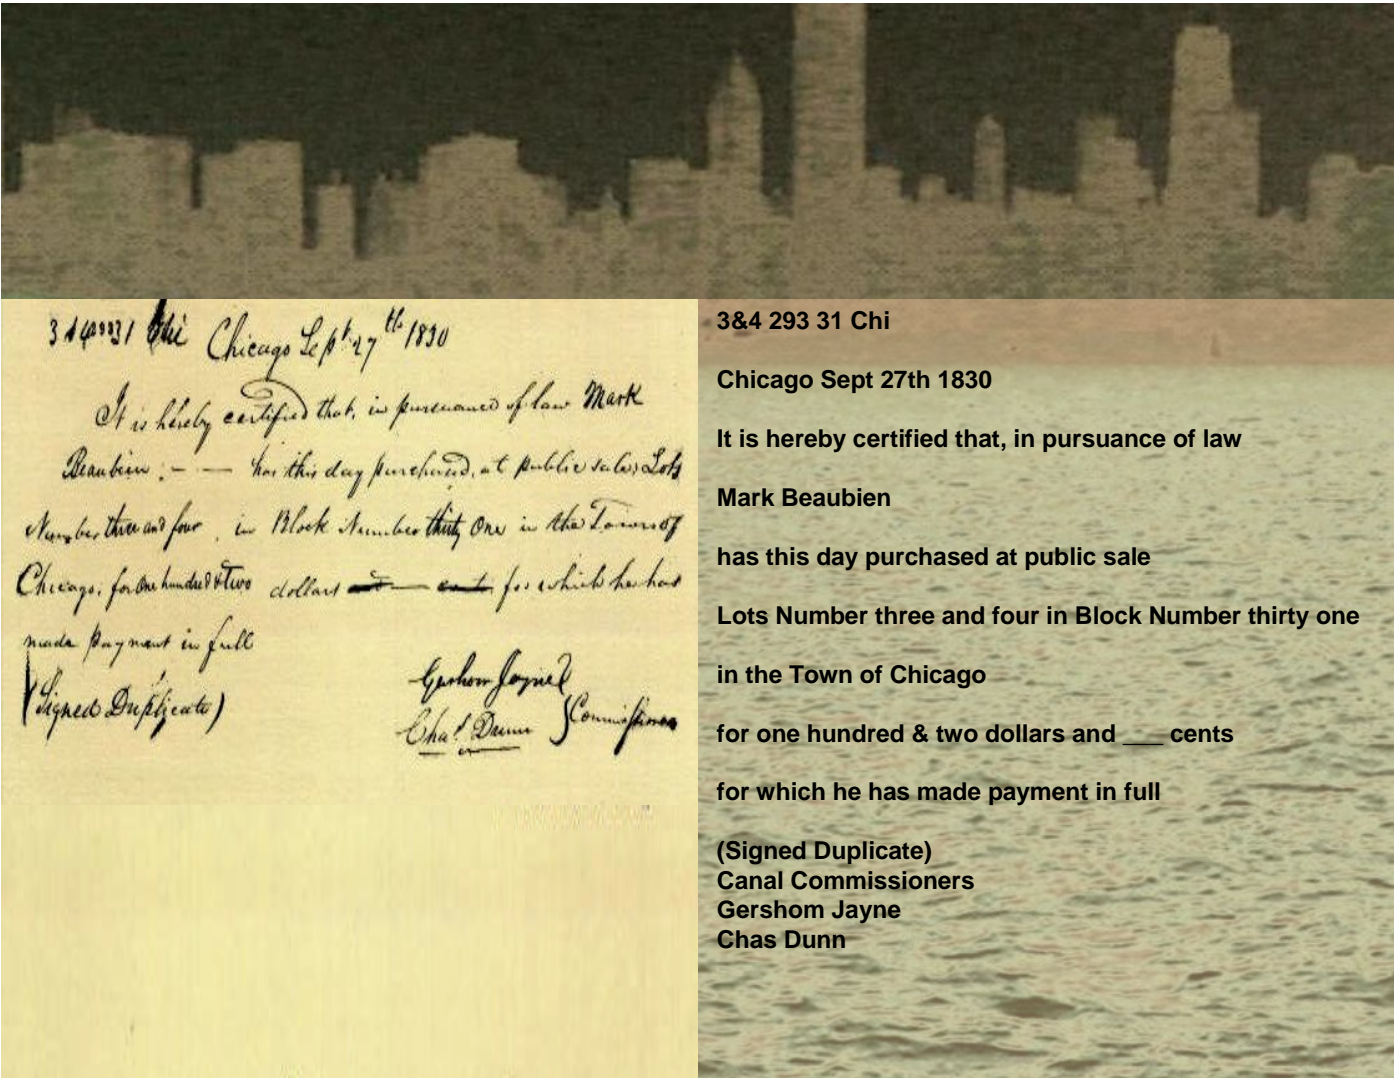 Chi
Chicago Sept 27th 1830
It is hereby certified that, in pursuance of law Mark
Beaubien ; - — has this day purchased, at public sale, Lots
Number three and four, in Block Number thirty One in the Town of
Chicago, for One hundred & Two dollars for which he has
made payment in full
(Signed Duplicate)
Gershom Jayne
Chas. Dunn
Commissioners
3&4 293 31 Chi
Chicago Sept 27th 1830
It is hereby certified that, in pursuance of law
Mark Beaubien
has this day purchased at public sale
Lots Number three and four in Block Number thirty one
in the Town of Chicago
for one hundred & two dollars and ___ cents
for which he has made payment in full
(Signed Duplicate)
Canal Commissioners
Gershom Jayne
Chas Dunn